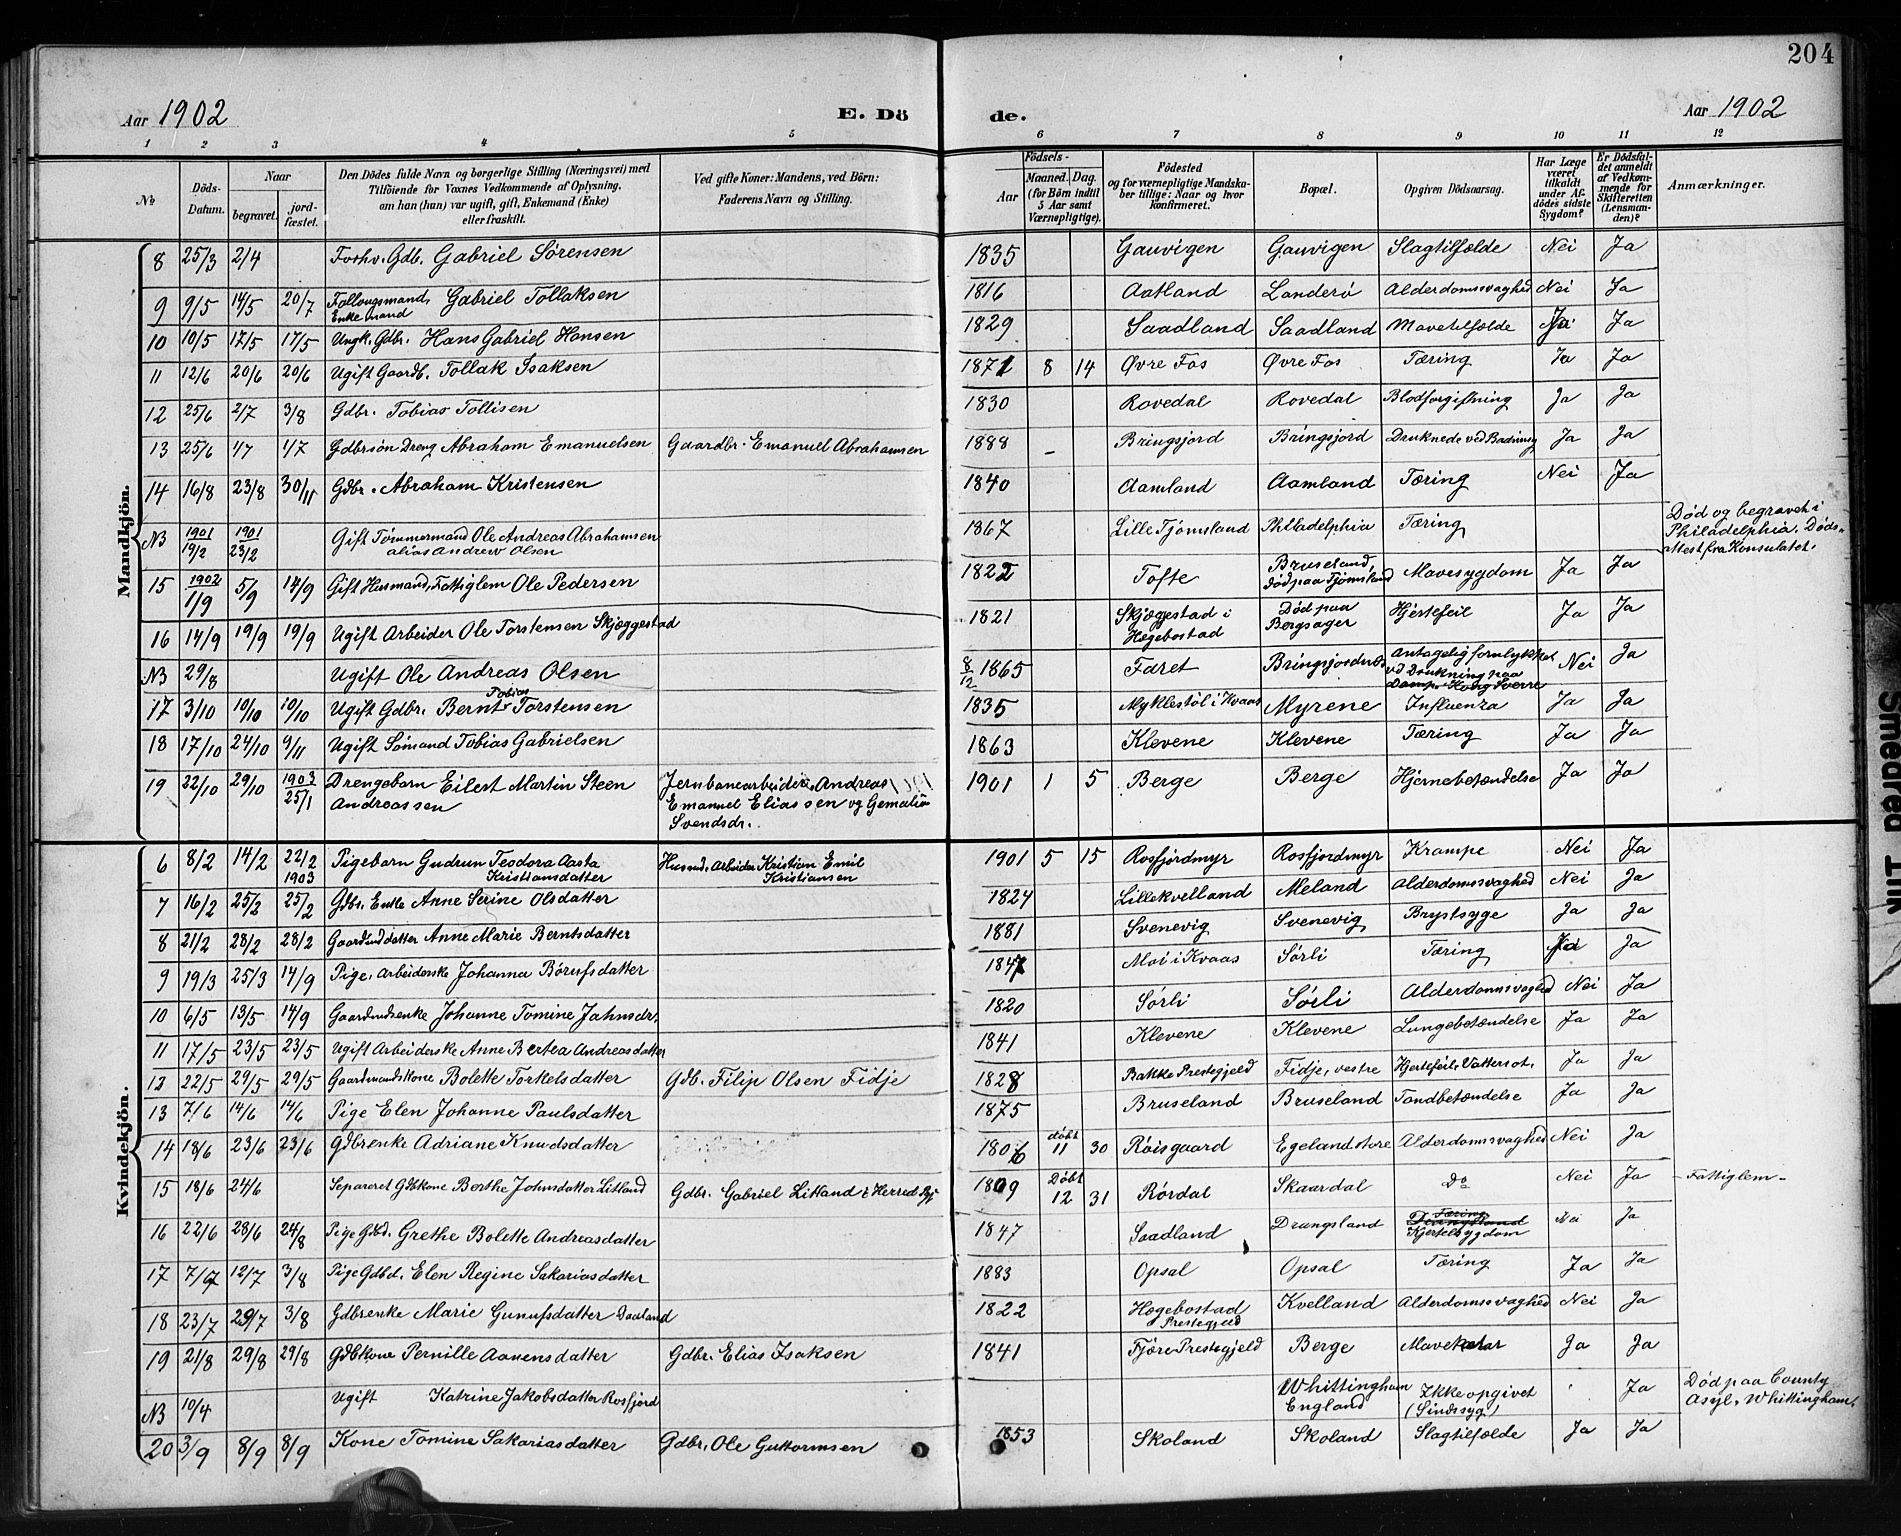 204
Aar 1902 E. Dö de. Aar 1902
1 2 3 4 5 6 7 8 9 10 11 12
No Döds-Datum. Naar begravet. jordfæstet. Den Dödes fulde Navn og borgerlige Stilling (Næringsvei) med Tilföiende for Voxnes Vedkommende af Oplysning, om han (hun) var ugift, gift, Enkemand (Enke) eller fraskilt. Ved gifte Koner: Mandens, ved Börn: Faderens Navn og Stilling. Födsels- Aar Maaned. Dag. (for Börn indtil 5 Aar samt Værnepligtige). Födested og for værnepligtige Mandskaber tillige: Naar og hvor konfirmeret. Bopæl. Opgiven Dödsaarsag. Har Læge været tilkaldt under Afdödes sidste Sygdom? Er Dödsfuldet anmeldt af Vedkommende for Skifteretten (Lensmanden)? Anmærkninger.
Mandkjön.
8 25/3 2/4 Forhv. Gdb. Gabriel Sørensen 1835 Gauvigen Gauvigen Slagtilfælde Nei Ja
9 9/5 14/5 20/7 Follaugsmand, Enkemand Gabriel Tollaksen 1816 Aatland Landerö Alderdomssvaghed Nei Ja
10 10/5 17/5 17/5 Ungk. Gdbr. Hans Gabriel Hansen 1829 Saadland Saadland Mavetilfælde Ja Ja
11 12/6 20/6 20/6 Ugift Gaardb. Tollak Isaksen 1871 8 14 Øvre Fos Øvre Fos Tæring Ja Ja
12 25/6 2/7 3/8 Gdbr. Tobias Tollisen 1830 Rovedal Rovedal Blodforgiftning Ja Ja
13 25/6 1/7 1/7 Gdbrsön Dreng Abraham Emanuelsen Gaardbr. Emanuel Abrahamsen 1888 – Bringsjord Bringsjord Druknede ved Badning Ja Ja
14 16/8 23/8 30/11 Gdbr. Abraham Kristensen 1840 Aamland Aamland Tæring Nei Ja
NB 1901 19/2 1901 23/2 Gift Tømmermand Ole Andreas Abrahamsen alias Andrew Olsen 1867 Lille Tjømsland Philadelphia Tæring Død og begravet i Philadelphia. Dødsattest fra Konsulatet.
15 1902 1/9 5/9 14/9 Gift Husmand, Fattiglem Ole Pedersen 1822 Tofte Bruseland, död paa Tjømsland Mavesygdom Ja Ja
16 14/9 19/9 19/9 Ugift Arbeider Ole Torstensen Skjæggestad 1821 Skjæggestad i Hægebostad Död paa Bergsager Hjertefeil Ja Ja
NB 29/8 Ugift Ole Andreas Olsen 8/12 1865 Faret Bringsjordnes Antagelig forulykket ved Drukning paa Damp. Kong Sverre Nei Ja
17 3/10 10/10 10/10 Ugift Gdbr. Bernt Tobias Torstensen 1835 Myklestöl i Kvaas Myrene Influenza Ja Ja
18 17/10 24/10 9/11 Ugift Sømand Tobias Gabrielsen 1863 Klevene Klevene Tæring Ja Ja
19 22/10 29/10 1903 25/1 Drengebarn Eilert Martin Steen Andreassen Jernbanearbeider Andreas Emanuel Eliassen og Gemalie Svendsdr. 1901 1 5 Berge Berge Hjernebetændelse Ja Ja
Kvindekjön.
6 8/2 14/2 22/2 1903 Pigebarn Gudrun Teodora Aasta Kristiansdatter Husmd. Arbeider Kristian Emil Kristiansen 1901 5 15 Rosfjordmyr Rosfjordmyr Krampe Nei Ja
7 16/2 25/2 25/2 Gdbr. Enke Anne Serine Olsdatter 1824 Lillekvelland Meland Alderdomssvaghed Nei Ja
8 21/2 28/2 28/2 Gaardmddatter Anne Marie Berntsdatter 1881 Svenevig Svenevig Brystsyge Ja Ja
9 19/3 25/3 14/9 Pige, Arbeiderske Johanna Börufsdatter 1847 Moi i Kvaas Sörli Tæring Ja Ja
10 6/5 13/5 14/9 Gaardmdsenke Johanne Tomine Jahnsdr. 1820 Sörli Sörli Alderdomssvaghed Nei Ja
11 17/5 23/5 23/5 Ugift Arbeiderske Anne Bertea Andreasdatter 1841 Klevene Klevene Lungebetændelse Ja Ja
12 22/5 29/5 29/5 Gaardmandskone Bolette Torkelsdatter Gdb. Filip Olsen Fidje 1828 Bakke Prestegjeld Fidje, vestre Hjertefeil, Vattersot. Ja Ja
13 7/6 14/6 14/6 Pige Elen Johanne Paulsdatter 1875 Bruseland Bruseland Tandbetændelse Ja Ja
14 18/6 23/6 23/6 Gdbrenke Adriane Knudsdatter 1806 döbt 11 30 Röisgaard Egeland store Alderdomssvaghed Nei Ja
15 18/6 24/6 Separeret Gdbkone Berthe Johnsdatter Litland Gdbr. Gabriel Litland i Herred Pgj 1809 Döbt 12 31 Rördal Skaardal Do Nei Ja – Fattiglem –
16 22/6 28/6 24/8 Pige Gdbd. Grethe Bolette Andreasdatter 1847 Saadland Drangsland Tæring Kjertelsygdom Nei Ja
17 7/7 12/7 3/8 Pige Gdbd. Elen Regine Sakariasdatter 1883 Opsal Opsal Tæring Ja Ja
18 23/7 29/7 3/8 Gdbrenke Marie Gunufsdatter Daaland 1822 Hægebostad Prestegjeld Kvelland Alderdomssvaghed Nei Ja
19 21/8 29/8 29/8 Gdbkone Pernille Aanensdatter Gdbr. Elias Isaksen 1841 Fjöre Prestegjeld Berge Mavekatar Ja Ja
NB 10/4 Ugift Katrine Jakobsdatter Rosfjord Whittingham England Ikke opgivet (Sindssyg) Ja Död paa County Asyl, Whittingham.
20 3/9 8/9 8/9 Kone Tomine Sakariasdatter Gdbr. Ole Guttormsen 1853 Skoland Skoland Slagtilfælde Ja Ja